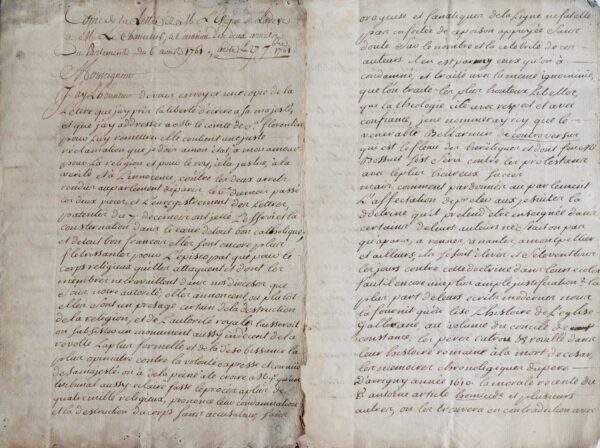 Copie de la Lettre de M. L'Eveque de Lodeve
a M. Le Chancelier, a l'occasion des deux arrets
du Parlement du 6 aout 1761.
Monseigneur
J'ay L'honneur de vous envoyer une copie de la
Lettre que j'ay pris la liberté d'ecrire a sa majesté,
et que j'ay addressée a M. le comte de St. florentin
pour Luy remettre, elle contient une juste
reclamation que je dois a mon etat, a mon amour
pour La religion et pour le roy, a la justice, a la
verité et a L'innocence, contre les deux arrets
rendus au parlement de paris le 6e du mois passé
ces deux pieces, et L'enregistrement des Lettres
patentes du ont jetté L'effroi et la
consternation dans le cœur de tout bon catholique,
et de tout bon francois elles sont encore plus
fletrissantes pour L'episcopat que pour le
corps religieux qu'elles attaquent et dont les
membres ne travaillent dans nos dioceses que
sous notre autorité; elles annoncent ou plutot
elles sont un presage certain de la destruction
de la religion, et de L'autorité royale. Laisseroit
on subsister un monument aussy indecent de la
revolte La plus formelle et de la desobeissance la
plus opiniatre contre la volonté expresse et connue
de sa majesté on a de la peine a le croire et qu'un
tribunal aussy eclairé fasse le procès a plus de
quatre mille religieux, prononce leur condamnation
et la destruction du corps sans accusateur, sans
orageuse et fanatique de la Ligue ne fut elle
pas infectée de ce poison appuyée sans
doute sur le nombre et la celebrité de ces
auteurs. il en est parmy ceux qu'on a
condamné, et traité avec la meme ignominie
que l'on traite les plus honteux Libelles,
que la theologie cite avec respect et avec
confiance, je ne nommeray icy que le
venerable Bellarmin de controversiis
qui est le fleau des heretiques et dont
Bossuet s'est servi contre les protestants
avec le plus heureux succès
mais comment pardonner au parlement
L'affectation de preter aux jesuites la
doctrine qu'il pretend etre enseignée dans
certains de leurs auteurs n'est ce pas
qu'a paris, a rennes, a nantes, a montpellier
et ailleurs, ils se sont elevé et s'elevent tous
les jours contre cette doctrine dans leurs ecoles
faut il encore une plus ample justification? la
plus part de leurs ecrits modernes nous
la fournit qu'on lise L'histoire de L'eglise
Gallicane au volume du concile de
constance, les peres catrou et rouillé dans
leur histoire romaine a la mort de cesar,
les memoires chronologiques du pere
D'avrigny année 1610 la morale recente du
P. antoine article homicide et plusieurs
autres, on les trouvera en contradiction avec